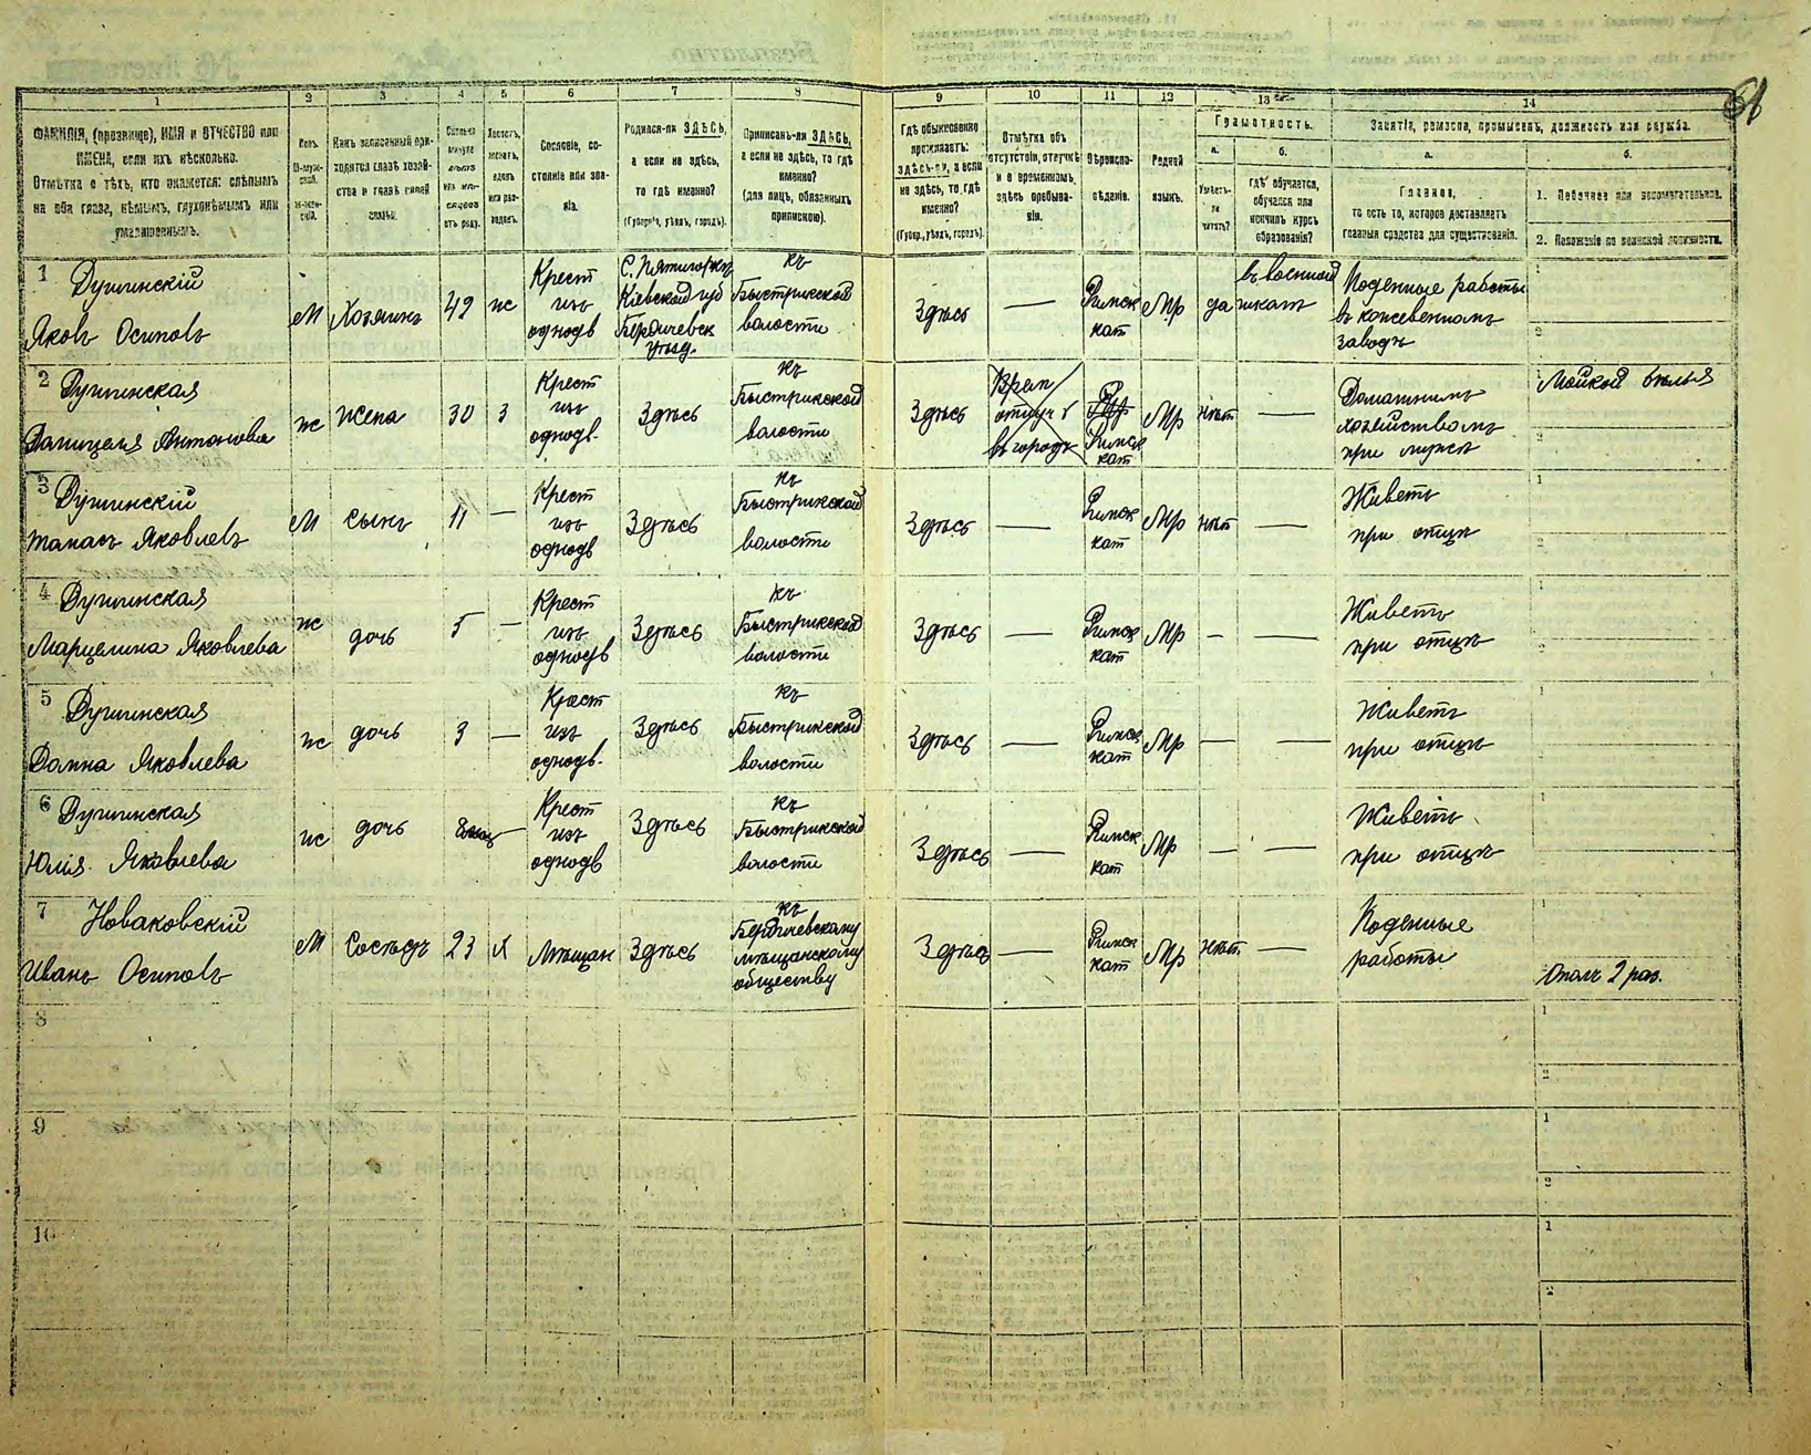 1 2 3 4 5 6 7 8 9 10 11 12 13 14
ФАМИЛІЯ, (прозвище), ИМЯ и ОТЧЕСТВО или
ИМЕНА, если ихъ нѣсколько.
Отмѣтка о тѣхъ, кто окажется: слѣпымъ
на оба глаза, нѣмымъ, глухонѣмымъ или
умалишеннымъ.
Полъ.
М-муж-
ской.
Ж-жен-
скій.
Какъ записанный при-
ходится главѣ хозяй-
ства и главѣ своей
семьи.
Сколько
минуло
лѣтъ
или мѣ-
сяцевъ
отъ роду.
Холостъ,
женатъ,
вдовъ
или раз-
веденъ.
Сословіе, со-
стояніе или зва-
ніе.
Родился-ли ЗДѢСЬ,
а если не здѣсь,
то гдѣ именно?
(Губернія, уѣздъ, городъ).
Приписанъ-ли ЗДѢСЬ,
а если не здѣсь, то гдѣ
именно?
(для лицъ, обязанныхъ
припискою).
Гдѣ обыкновенно
проживаетъ:
здѣсь-ли, а если
не здѣсь, то гдѣ
именно?
(Губер., уѣздъ, городъ).
Отмѣтка объ
отсутствіи, отлучкѣ
и о временномъ
здѣсь пребыва-
ніи.
Вѣроиспо-
вѣданіе.
Родной
языкъ.
Грамотность.
а. б.
Умѣетъ-
ли
читать?
гдѣ обучается,
обучался или
кончилъ курсъ
образованія?
Занятія, ремесло, промыселъ, должность или служба.
а. б.
Главное,
то есть то, которое доставляетъ
главныя средства для существованія.
1. Побочное или вспомогательное.
2. Положеніе по воинской повинности.
1 Душинскій
Яковъ Осиповъ
М Хозяинъ 42 ж
Крест
изъ
однодв
Кіевской губ
Бердичевск
уѣзд.
къ
Быстрикской
волости
Здѣсь —
Римск
кат
Мр да
въ военной
Поденные работы
въ кожевенномъ
заводѣ
2 Душинская
Антонова
ж жена 30 з
Крест
изъ
однодв.
Здѣсь
къ
Быстрикской
волости
Здѣсь
Врем
отлуч
въ городъ
Римск
кат
Мр нѣт —
Домашнимъ
хозяйствомъ
при мужѣ
Мойкой бѣлья
3 Душинскій
Яковлевъ
М сынъ 11 —
Крест
изъ
однодв
Здѣсь
къ
Быстрикской
волости
Здѣсь —
Римск
кат
Мр нѣт —
Живетъ
при отцѣ
4 Душинская
Марцелина Яковлева
ж дочь 5 —
Крест
изъ
однодв
Здѣсь
къ
Быстрикской
волости
Здѣсь —
Римск
кат
Мр — —
Живетъ
при отцѣ
5 Душинская
Домна Яковлева
ж дочь 3 —
Крест
изъ
однодв.
Здѣсь
къ
Быстрикской
волости
Здѣсь —
Римск
кат
Мр — —
Живетъ
при отцѣ
6 Душинская
Юлія Яковлева
ж дочь —
Крест
изъ
однодв
Здѣсь
къ
Быстрикской
волости
Здѣсь —
Римск
кат
Мр — —
Живетъ
при отцѣ
7 Новаковскій
Иванъ Осиповъ
М Сосѣдъ 23 х
Мѣщан Здѣсь
къ
Бердичевскому
мѣщанскому
обществу
Здѣсь —
Римск
кат
Мр нѣт. —
Поденные
работы
8
9
10